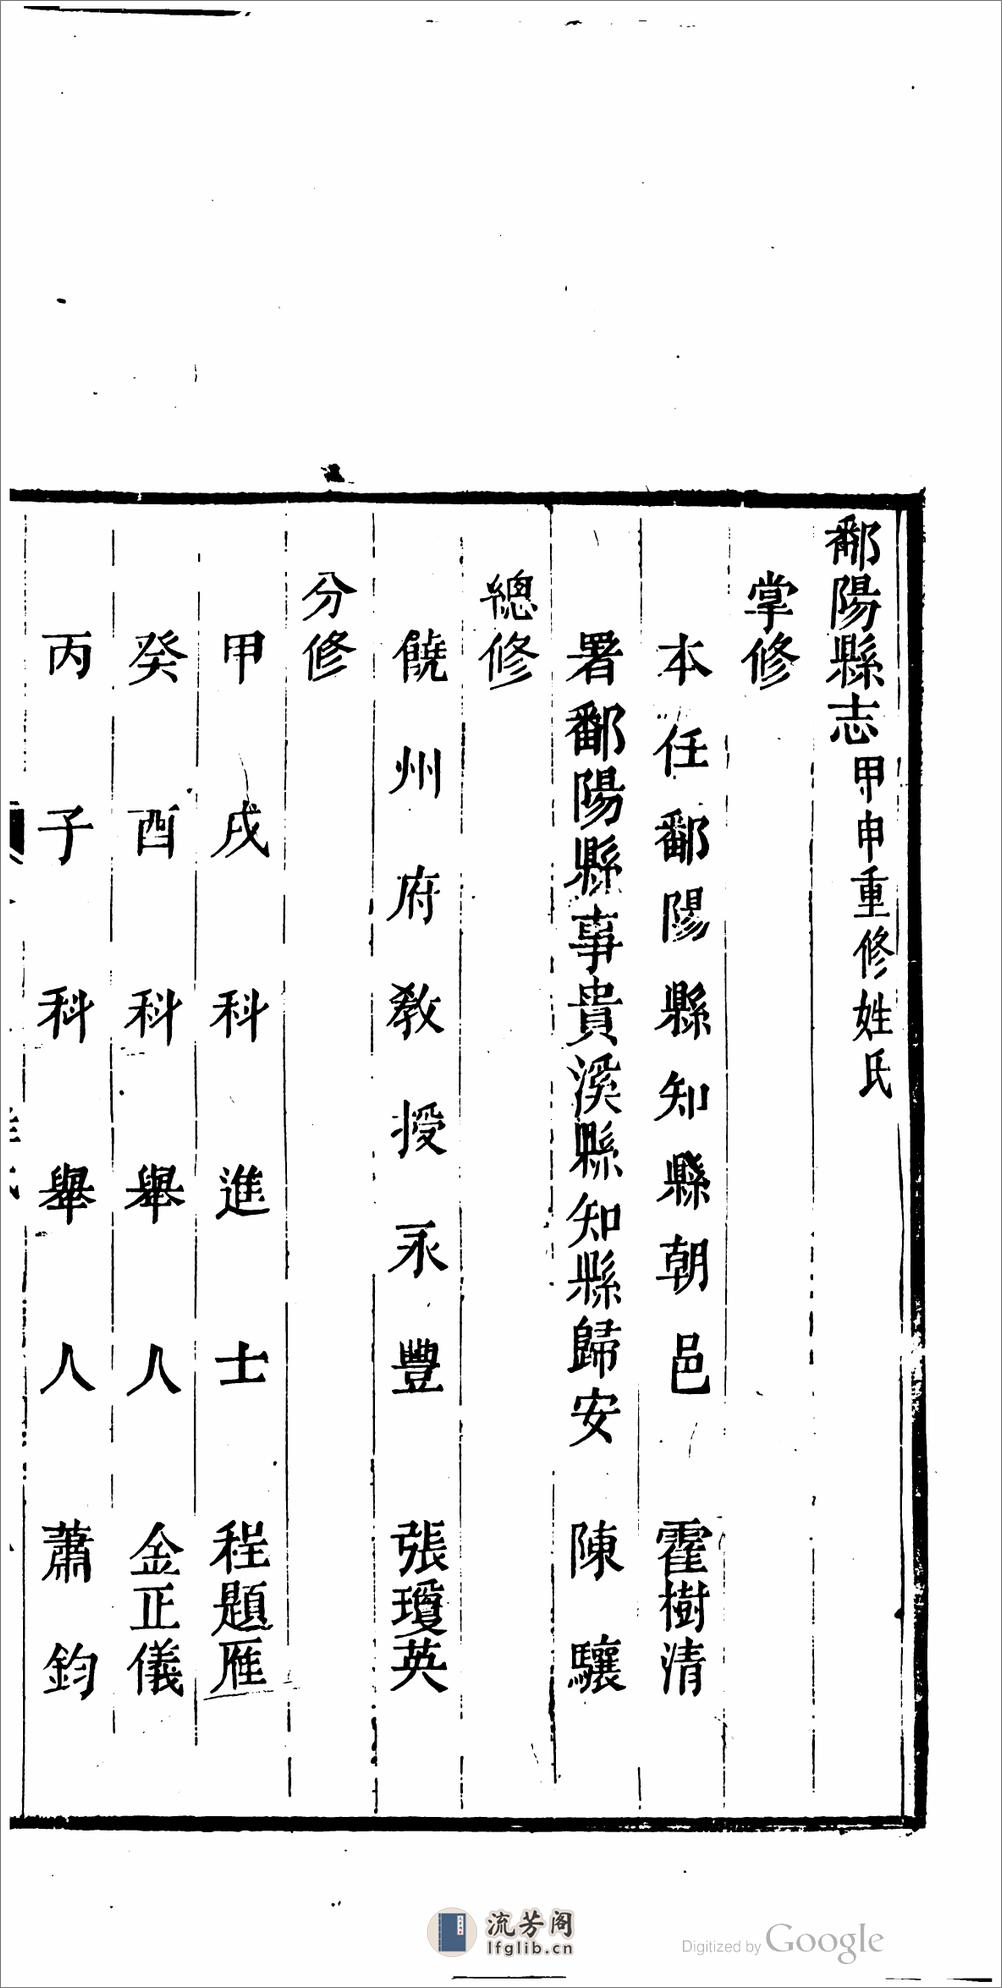 鄱陽縣志甲申重修姓氏
掌修
本任鄱陽縣知縣朝邑 霍樹清
署鄱陽縣事貴溪縣知縣歸安 陳驤
總修
饒州府教授永豐 張瓊英
分修
甲戌科進士 程題雁
癸酉科舉人 金正儀
丙子科舉人 蕭鈞
流芳阁
lfglib.cn
Digitized by Google